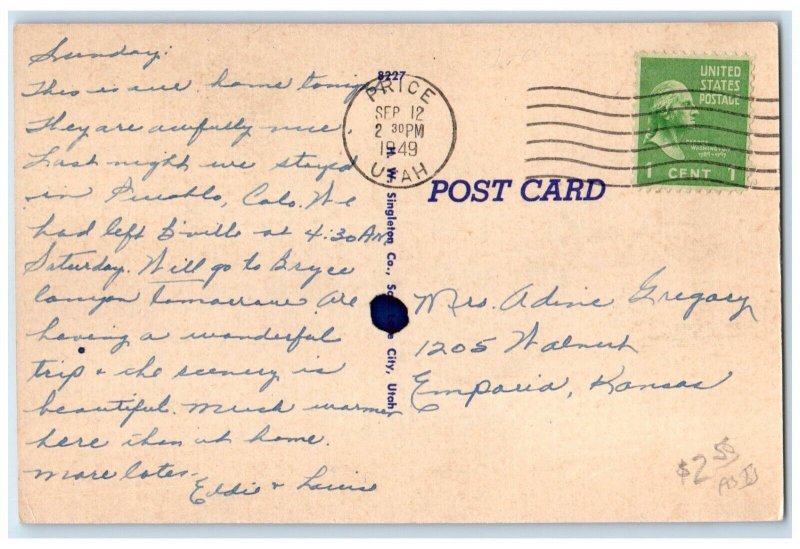 Sunday:
This is our home tonight
They are awfully nice.
Last night we stayed
in Pueblo, Colo. We
had left B'ville at 4:30 AM
Saturday. Will go to Bryce
canyon tomorrow. Are
having a wonderful
trip + the scenery is
beautiful. Much warmer
here than at home.
More later.
Eddie + Louise
8227
H. W. Singleton Co., Salt Lake City, Utah
PRICE
SEP 12
2 30 PM
1949
UTAH
UNITED
STATES
POSTAGE
WASHINGTON
1 CENT 1
POST CARD
Mrs. Adine Gregory
1205 Walnut
Emporia, Kansas
$2 50